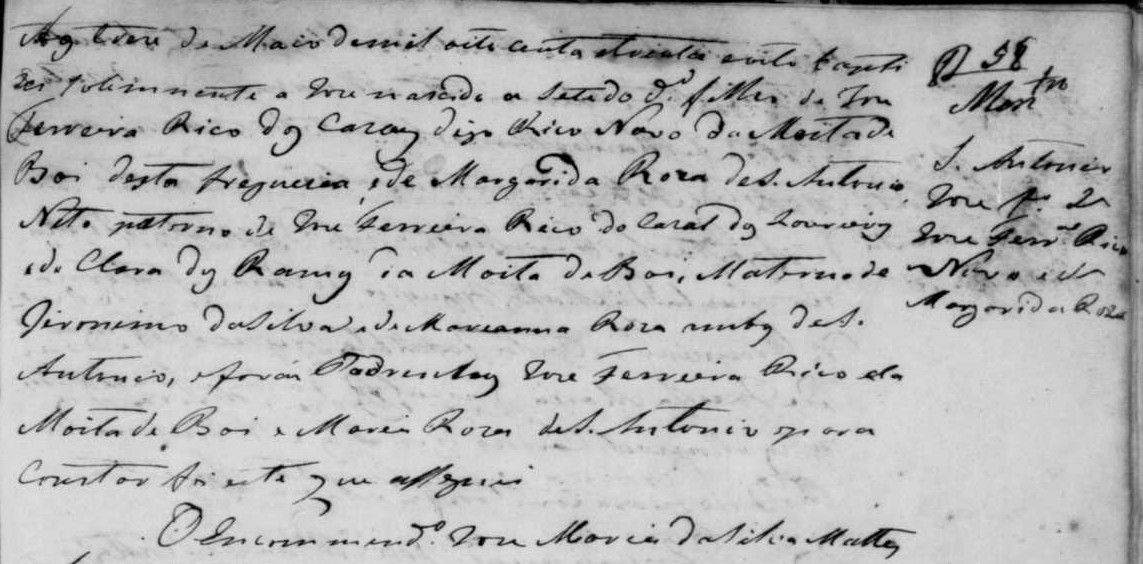 Aos treze de Maio de mil oito centos e trenta e oito bapti
zei solemnemente a Joze nascido a sete do dº. filho de Joze
Ferreira Rico dos Cazaes digo Rico Novo da Moita de
Boi desta freguezia, e de Margarida Roza de S. Antonio,
Neto paterno de Joze Ferreira Rico do Cazal dos Loureiros
e de Clara dos Ramos da Moita de Boi, Materno de
Jeronimo da Silva e de Mareanna Roza ambos de S.
Antonio, e forão Padrinhos Joze Ferreira Rico da
Moita de Boi e Maria Roza de S. Antonio e para
constar fiz este que assignei
O Encommendº. Joze Maria da Silva Mattos
58
S. Antonio
Joze fº. de
Joze Ferrª. Rico
Novo e de
Margarida Roza